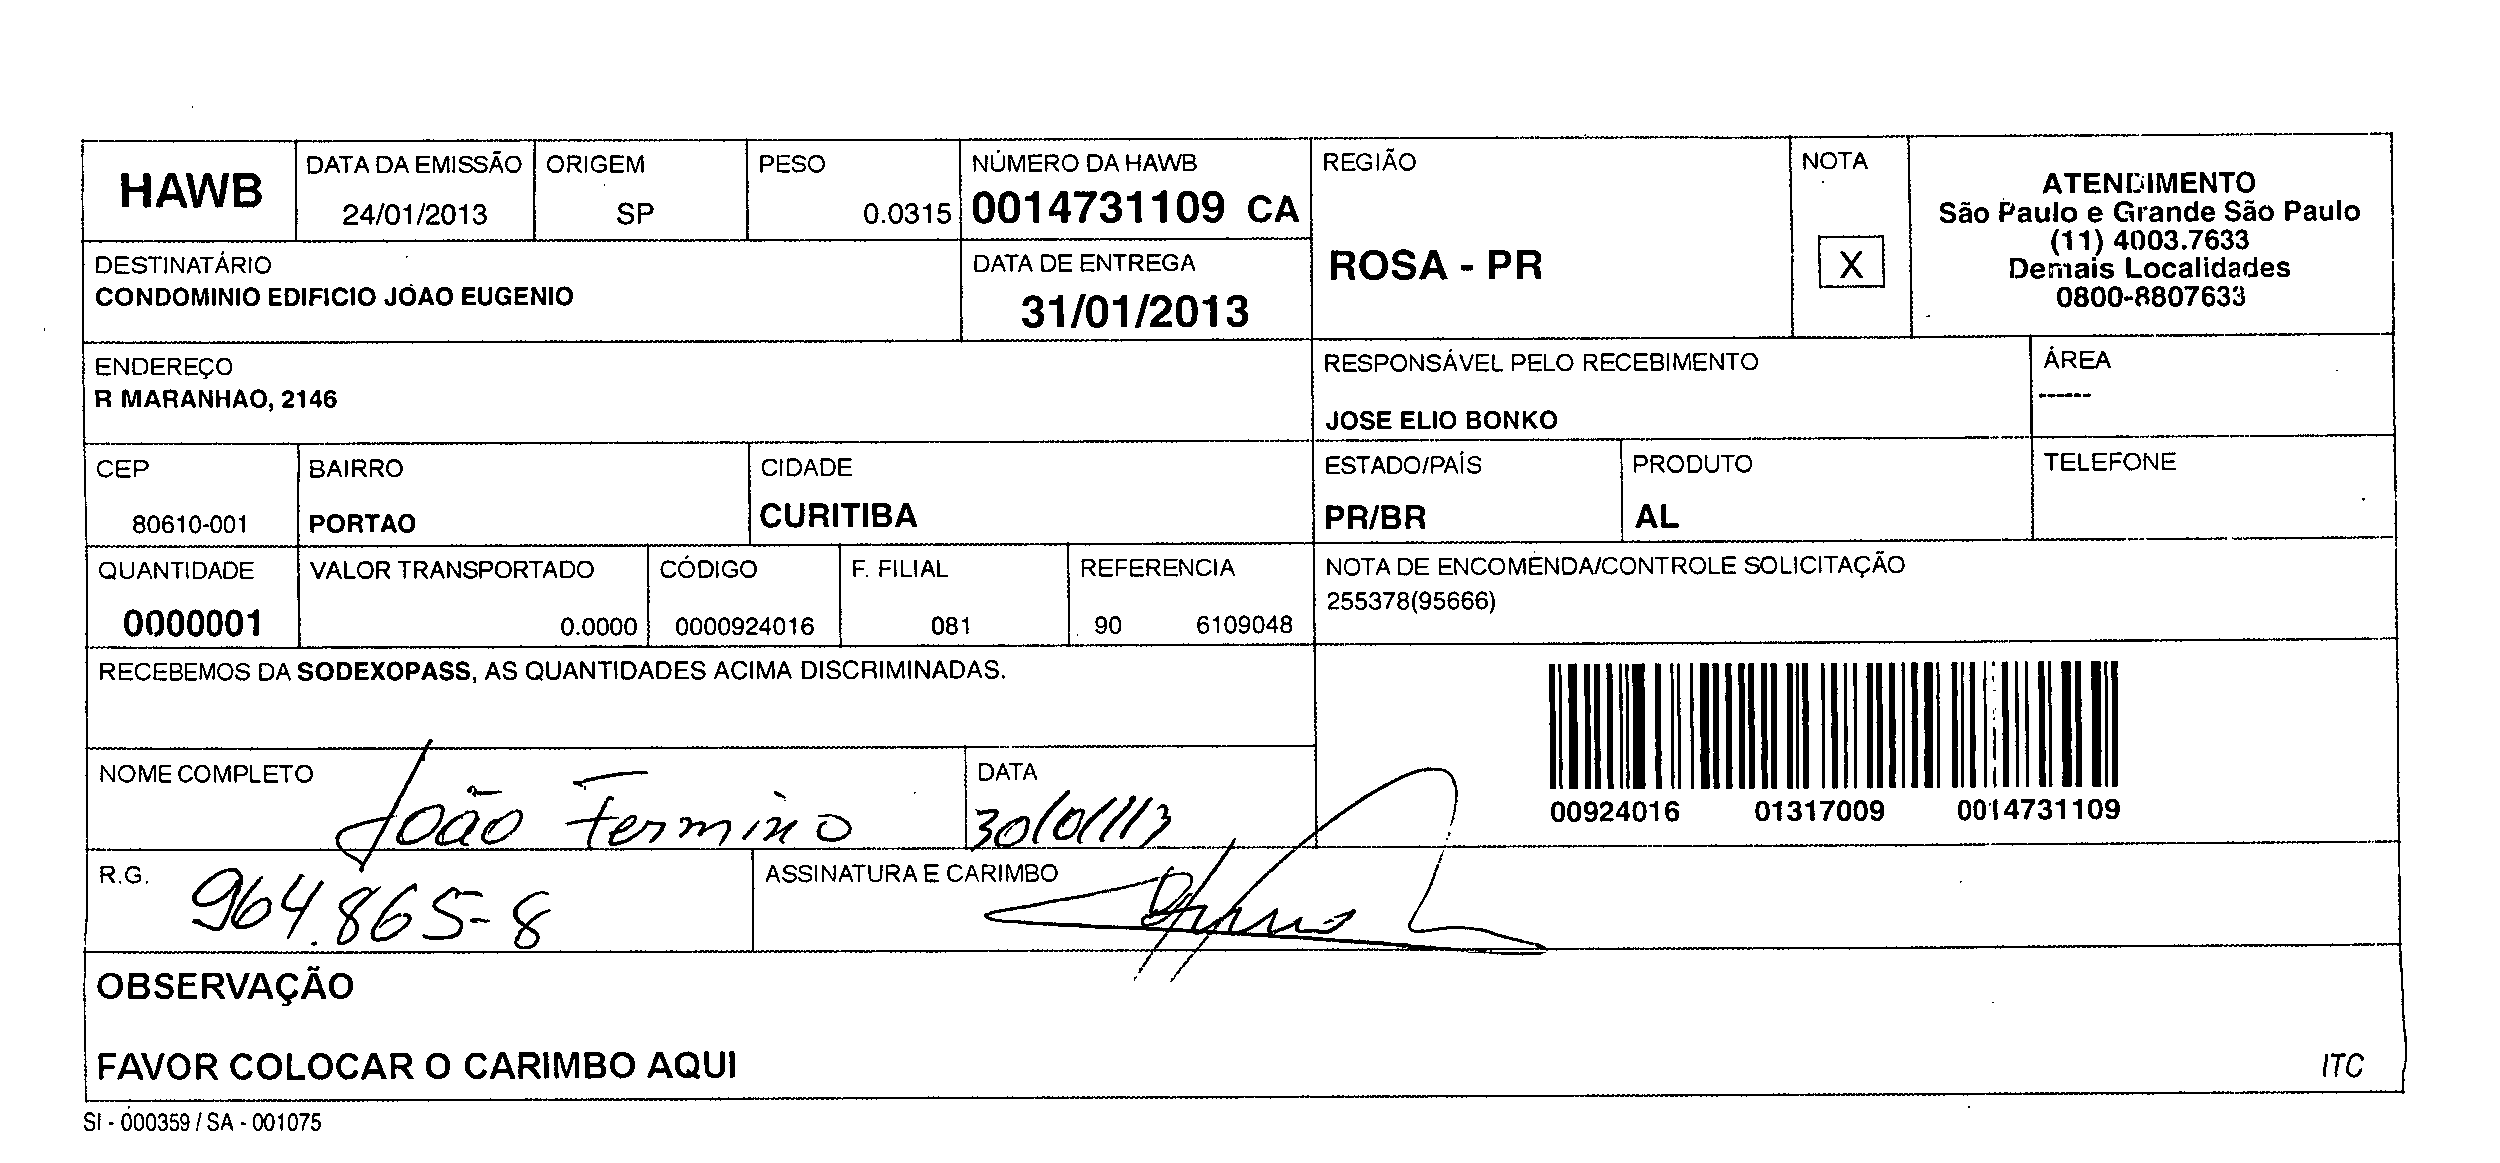 HAWB
DATA DA EMISSÃO
24/01/2013
ORIGEM
SP
PESO
0.0315
NÚMERO DA HAWB
0014731109 CA
REGIÃO
ROSA - PR
NOTA
X
ATENDIMENTO
São Paulo e Grande São Paulo
(11) 4003.7633
Demais Localidades
0800-8807633
DESTINATÁRIO
CONDOMINIO EDIFICIO JOAO EUGENIO
DATA DE ENTREGA
31/01/2013
ENDEREÇO
R MARANHAO, 2146
RESPONSÁVEL PELO RECEBIMENTO
JOSE ELIO BONKO
ÁREA
------
CEP
80610-001
BAIRRO
PORTAO
CIDADE
CURITIBA
ESTADO/PAÍS
PR/BR
PRODUTO
AL
TELEFONE
QUANTIDADE
0000001
VALOR TRANSPORTADO
0.0000
CÓDIGO
0000924016
F. FILIAL
081
REFERENCIA
90 6109048
NOTA DE ENCOMENDA/CONTROLE SOLICITAÇÃO
255378(95666)
RECEBEMOS DA SODEXOPASS, AS QUANTIDADES ACIMA DISCRIMINADAS.
00924016 01317009 0014731109
NOME COMPLETO
João Fermino
DATA
30/01/13
R.G.
964.865-8
ASSINATURA E CARIMBO
OBSERVAÇÃO
FAVOR COLOCAR O CARIMBO AQUI
ITC
SI - 000359 / SA - 001075